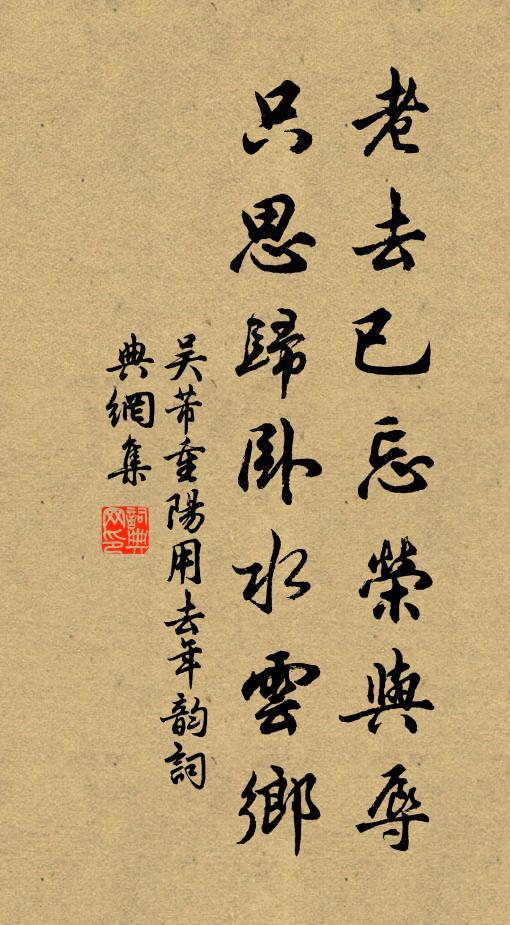 老去已忘榮與辱
只思歸卧水雲鄉
吴芾重陽用去年韵詞
典網集
詞典
网印